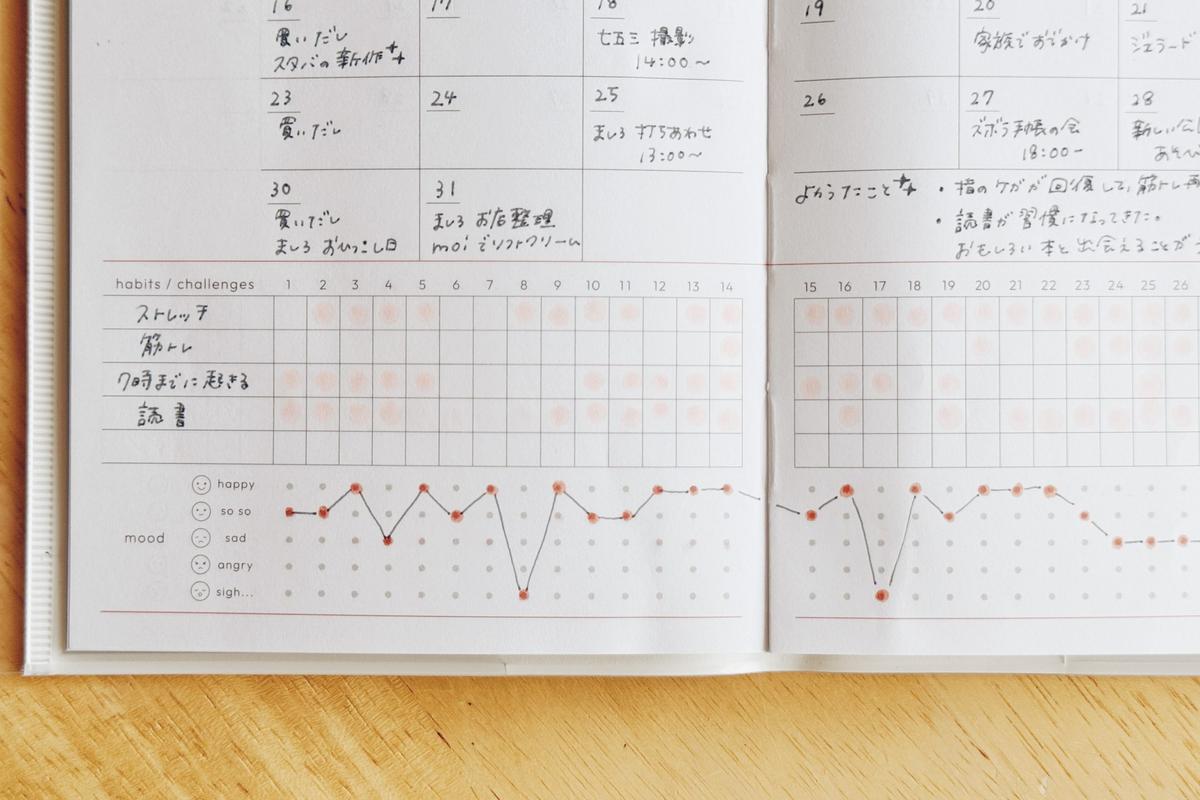 16
買いだし
スタバの新作
17
18
七五三 撮影
14:00〜
19
20
家族でおでかけ
21
ジェラード
23
買いだし
24
25
ましろ 打ちあわせ
13:00〜
26
27
ズボラ手帳の会
18:00-
28
新しい公
あそべ
30
買いだし
ましろ おひっこし日
31
ましろ お店整理
moiでソフトクリーム
よかったこと
・指のケガが回復して、筋トレ再
・読書が習慣になってきた。
おもしろい本と出会えることが
habits / challenges 1 2 3 4 5 6 7 8 9 10 11 12 13 14 15 16 17 18 19 20 21 22 23 24 25 26
ストレッチ
筋トレ
7時までに起きる
読書
mood
happy
so so
sad
angry
sigh...